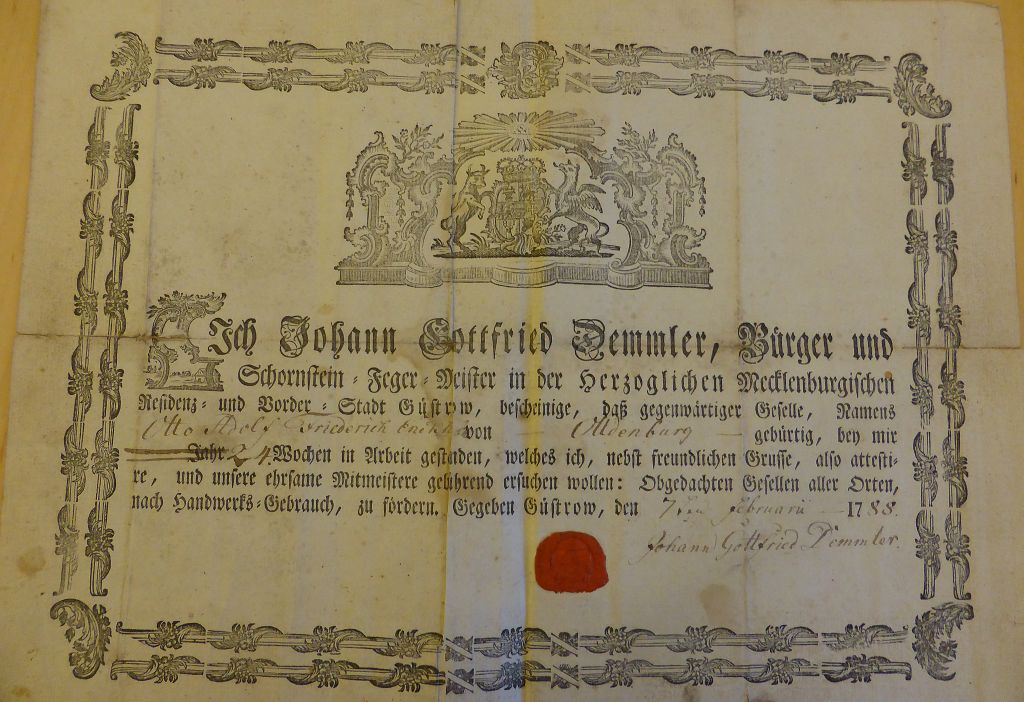 Ich Johann Gottfried Demmler, Bürger und
Schornstein-Feger-Meister in der Herzoglichen Mecklenburgischen
Residenz- und Vorder-Stadt Güstrow, bescheinige, daß gegenwärtiger Geselle, Namens
Otto Adolf Friederich von Olldenburg gebürtig, bey mir
Jahr 24 Wochen in Arbeit gestanden, welches ich, nebst freundlichen Grusse, also attesti-
re, und unsere ehrsame Mitmeistere gebührend ersuchen wollen: Obgedachten Gesellen aller Orten,
nach Handwerks-Gebrauch, zu fördern. Gegeben Güstrow, den 7ten Februarii 1788.
Johann Gottfried Demmler.